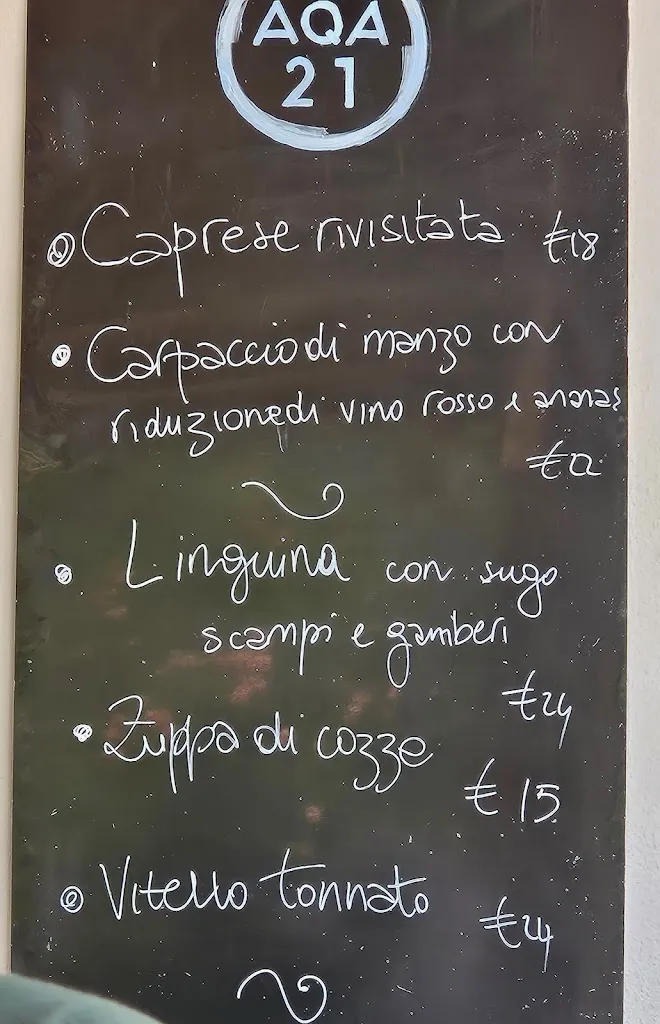 AQA
21
Caprese rivisitata €18
Carpaccio di manzo con
riduzione di vino rosso e ananas
€22
Linguina con sugo
scampi e gamberi
€24
Zuppa di cozze
€15
Vitello tonnato
€24